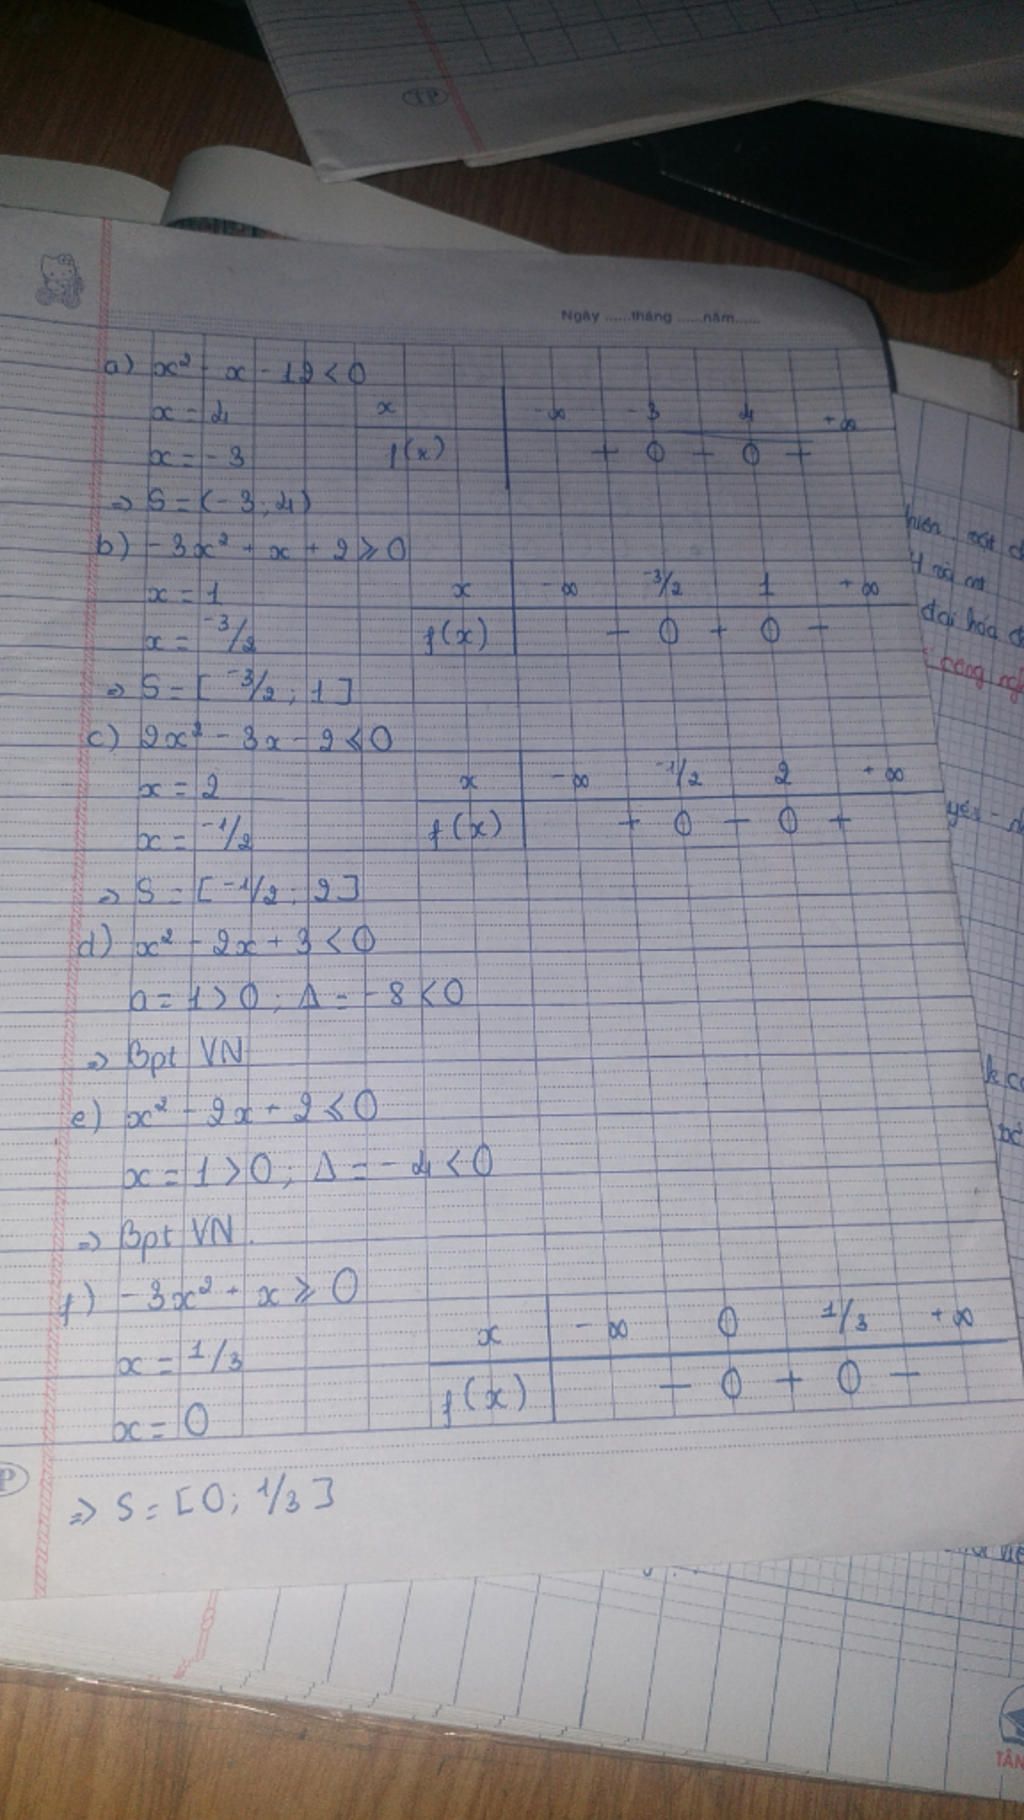 TP
Ngày ......tháng ......năm......
a) x² - x - 12 < 0
x = 4
x = -3
x -∞ -3 4 +∞
f(x) + 0 - 0 +
=> S = (-3; 4)
b) -3x² + x + 2 ≥ 0
x = 1
x = -3/2
x -∞ -3/2 1 +∞
f(x) - 0 + 0 -
=> S = [-3/2; 1]
c) 2x² - 3x - 2 ≤ 0
x = 2
x = -1/2
x -∞ -1/2 2 +∞
f(x) + 0 - 0 +
=> S = [-1/2; 2]
d) x² - 2x + 3 < 0
a = 1 > 0; Δ = -8 < 0
=> Bpt VN
e) x² - 2x + 2 ≤ 0
x = 1 > 0; Δ = -4 < 0
=> Bpt VN.
f) -3x² + x ≥ 0
x = 1/3
x = 0
x -∞ 0 1/3 +∞
f(x) - 0 + 0 -
=> S = [0; 1/3]
P
TÂN